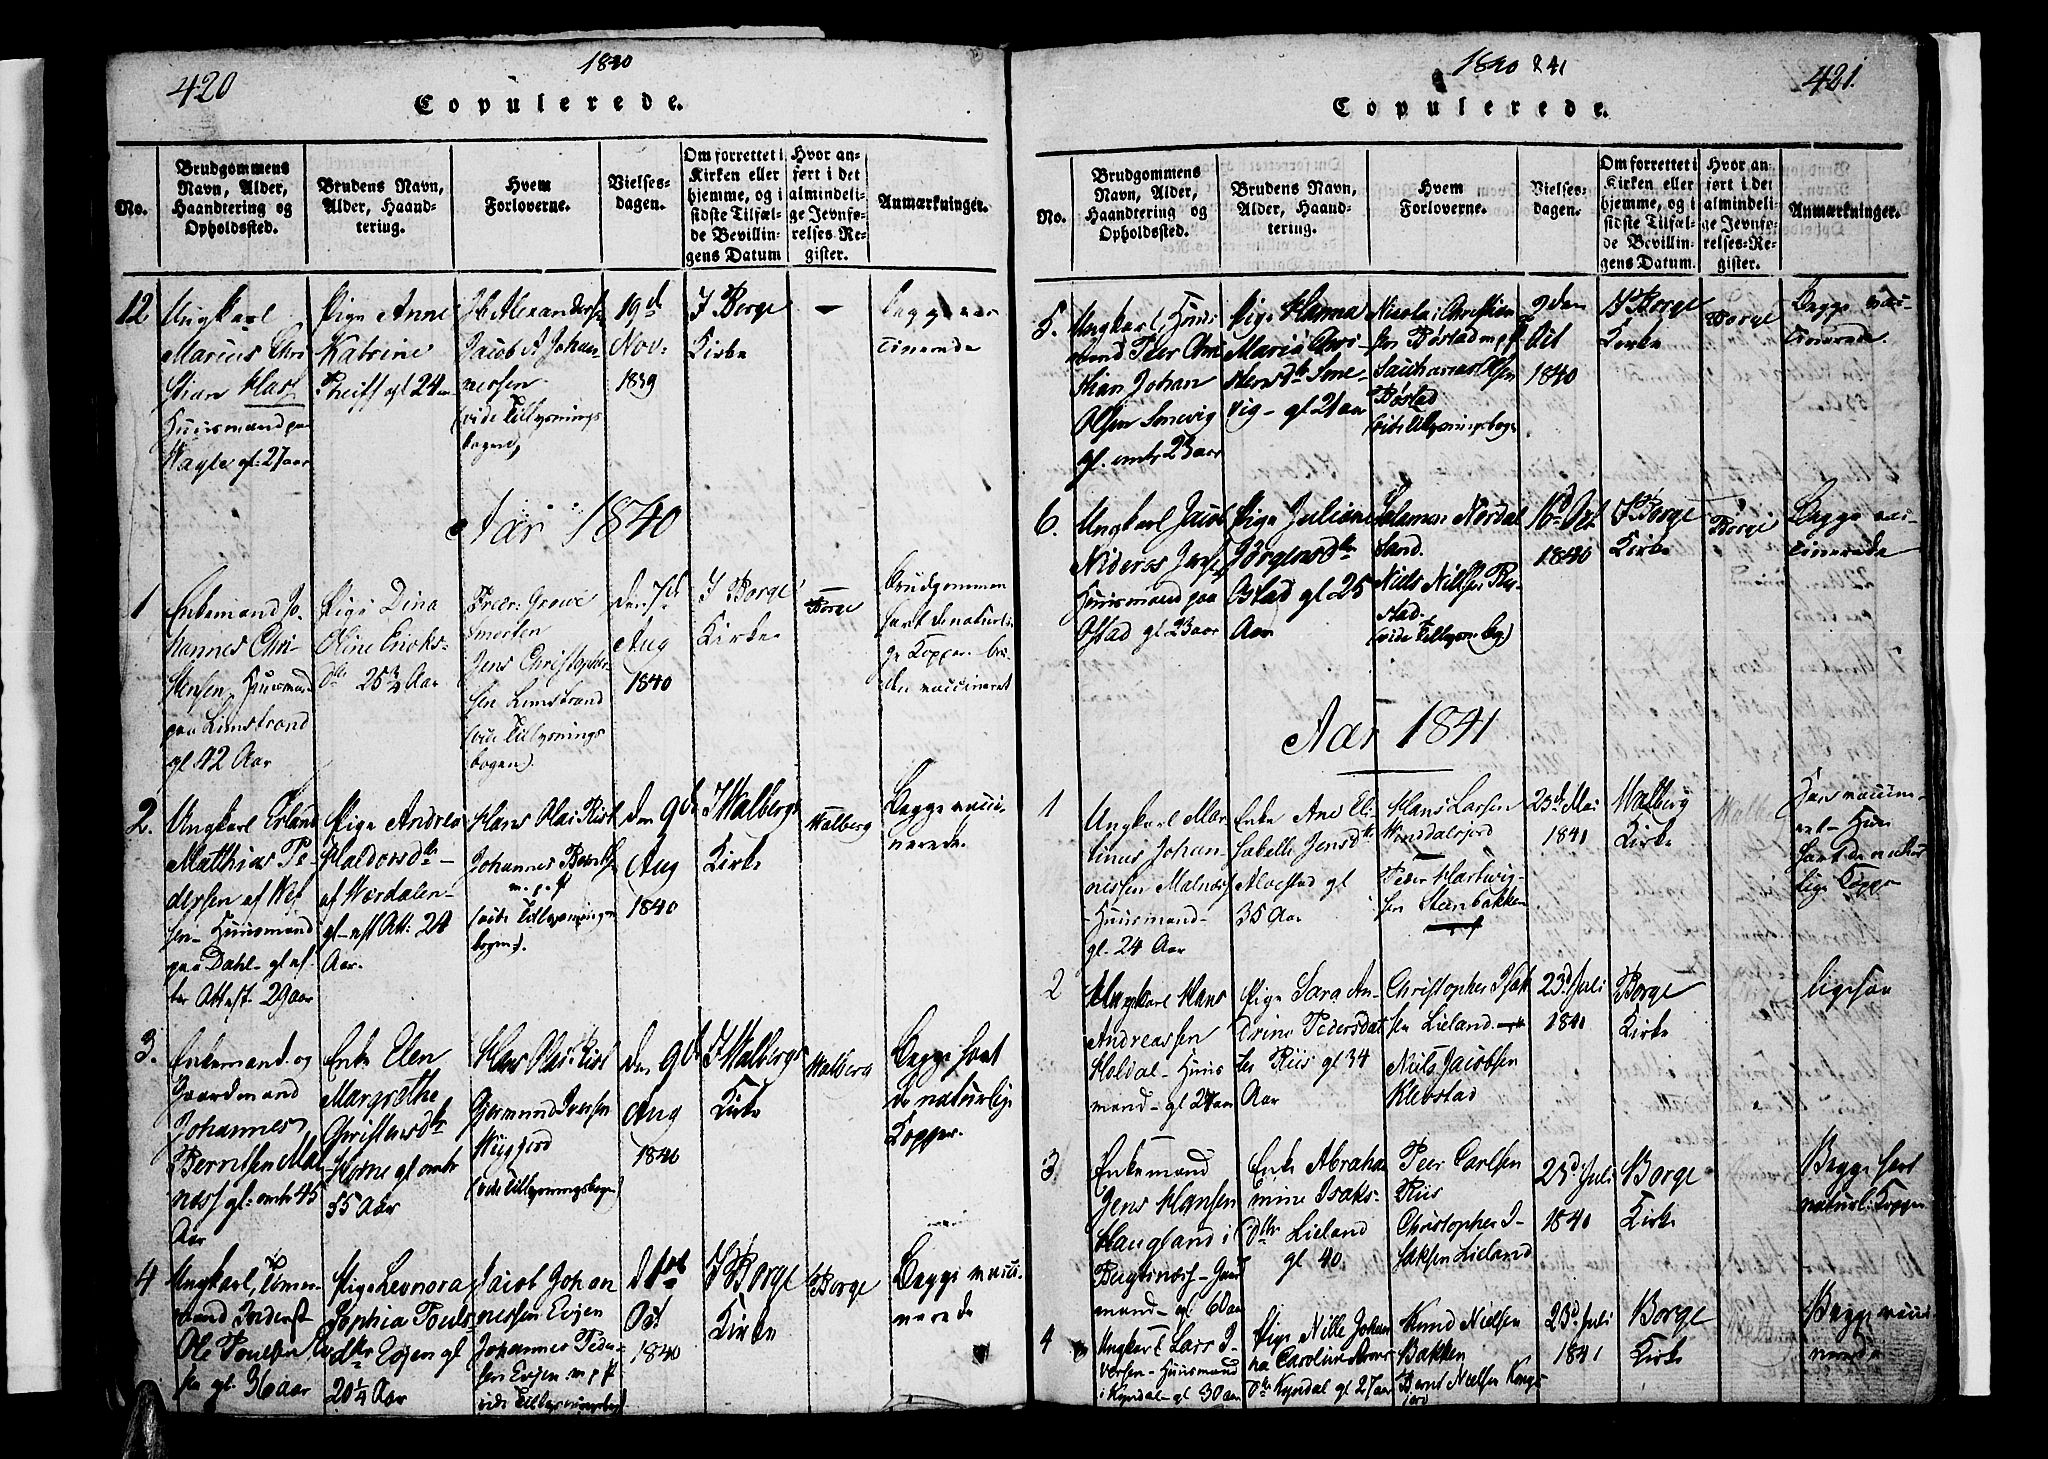 420
1840
Copulerede.
No.
Brudgommens Navn, Alder, Haandtering og Opholdssted.
Brudens Navn, Alder, Haandtering.
Hvem Forloverne.
Vielsesdagen.
Om forrettet i Kirken eller hjemme, og i sidste Tilfælde Bevillingens Datum
Hvor anført i det almindelige Jevnførelses-Register.
Anmærkninger.
12
Ungkarl
Marcus Chri
stian
Huusmand paa
gl. 27 aar
Pige Anne
Katrine
gl 24
Jacob A Johan
nessen
(vide Tillysnings
bogen)
19d
Nov.
1839
I Borge
Kirke
—
Begge vac
cinerede
Aar 1840
1
Enkemand Jo
hannes Chri
stensen, Huusmand
paa Limstrand
gl. 42 Aar
Pige Dina
Oline Enoks-
dtr 25¾ Aar
Jens Christopher
sen Limstrand
(vide Tillysnings
bogen)
den 7de
Aug
1840
I Borge
Kirke
Borge
Brudgommen
havt de naturli
ge Kopper. bru
den vaccineret
2.
Ungkarl Erland
Matthias Pe
dersen af Vef
sen Huusmand
paa Dahl gl ef
ter Attest 29 aar
Pige Andrea
Haldorsdtr
af Værdalen
gl. eft Att: 24
Aar.
Hans Olai Rist
Johannes
m. p. P
(vide Tillysnings
bogen).
den 9de
Aug
1840
I Valbergs
Kirke
Valberg
Begge vacci-
nerede.
3.
Enkemand og
Gaardmand
Johannes
Berntsen Mal
næs gl: omtr 45
Aar
Enke Elen
Margrethe
Christensdtr
gl omtr
55 Aar
Hans Olai Rist
Gjermund Iversen
(vide Tillysningsbogen)
den 9de
Aug
1840
I Valbergs
Kirke
Valberg
Begge havt
de naturlige
Kopper.
4
Ungkarl,
Ole
gl. 36 aar
Pige Leonora
Sophia Pouls
dtr Evjen gl
20¼ Aar
Jacob Johan
nessen Evjen
Johannes Peder
sen Evjen m. p. P
vide Tillysningsbog)
Oct
1840
I Borge
Kirke
Borge
Begge vacci.
nerede
1840 & 41
421.
Copulerede.
No.
Brudgommens Navn, Alder, Haandtering og Opholdssted.
Brudens Navn, Alder, Haandtering.
Hvem Forloverne.
Vielsesdagen.
Om forrettet i Kirken eller hjemme, og i sidste Tilfælde Bevillingens Datum.
Hvor anført i det almindelige Jevnførelses-Register.
Anmærkninger.
5.
Ungkarl, Huus
mand Peer Chri
stian Johan
Olsen Smevig
gl. omtr 23 aar
Pige Hanna
Maria Chri-
stensdtr Sme-
vig – gl 21 aar
Nicolai Christian
sen Bøstad m. p. P
Sacharias Olsen
Bøstad
(vide Tillysningsbog
2den
Oct
1840
I Borge
Kirke
Borge
Begge vac-
cinerede.
6.
Ungkarl Jacob
Huusmand paa
Ostad gl. 23 aar
Pige Juliane
Jørgensdtr
Ostad gl. 25
Aar
Salamon Nordal
Sand.
Niels Nielsen
(vide Tillysn: bog)
16d Oct
1840
I Borge
Kirke
Borge
Begge vac-
cinerede
Aar 1841
1
Ungkarl Mar
tinus Johan-
nessen Malnæs
Huusmand
gl. 24 Aar
Enke Ane Eli
sabeth Jensdtr
Alvestad gl
35 Aar
Hans Larsen
Peder Hartvig
sen Steenbakken
23d Mai
1841
Valberg
Kirke
Han vaccine-
ret – Hun
havt de natur
lige Kopper
2
Ungkarl Hans
Andreassen
Holdal – Huus
mand – gl 27 aar
Pige Sara An-
drina Pedersdat
ter Riis gl 34
Aar
Christopher Isak
sen Lieland
Niels Jacobsen
Klevstad
23d Juli
1841
Borge
Kirke
ligesaa
3.
Enkemand
Jens Hansen
Haugland i
mand – gl 60 aar
Enke Abraha
mine Isaks-
dtr Lieland
gl 40
Peer Carlsen
Riis
Christopher I-
saksen Lieland
23d Juli
1841
Borge
Kirke
Begge havt
naturl: Kopper
4
Ungkarl Lars I-
versen – Huusmand
i Kyndal – gl 30 aar
Pige Nille Johan
na Caroline
dtr Kyndal gl 27 aar
Knud Nielsen
Bakken
Bernt Nielsen
23d Juli
1841
Borge
Kirke
Begge vacci
nerede